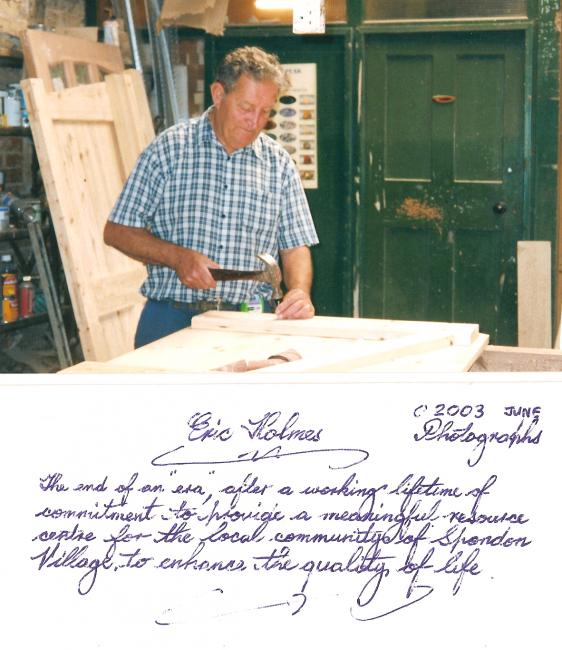 Eric Holmes
© 2003 JUNE
Photographs
The end of an "era", after a working lifetime of
commitment to provide a meaningful resource
centre for the local community of Spondon
Village, to enhance the quality of life.